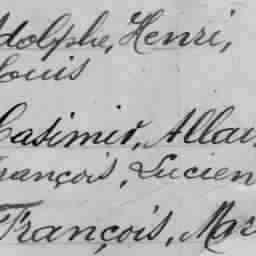 Adolphe, Henri,
Louis
Casimir, Allai
François, Lucien
François, Mar